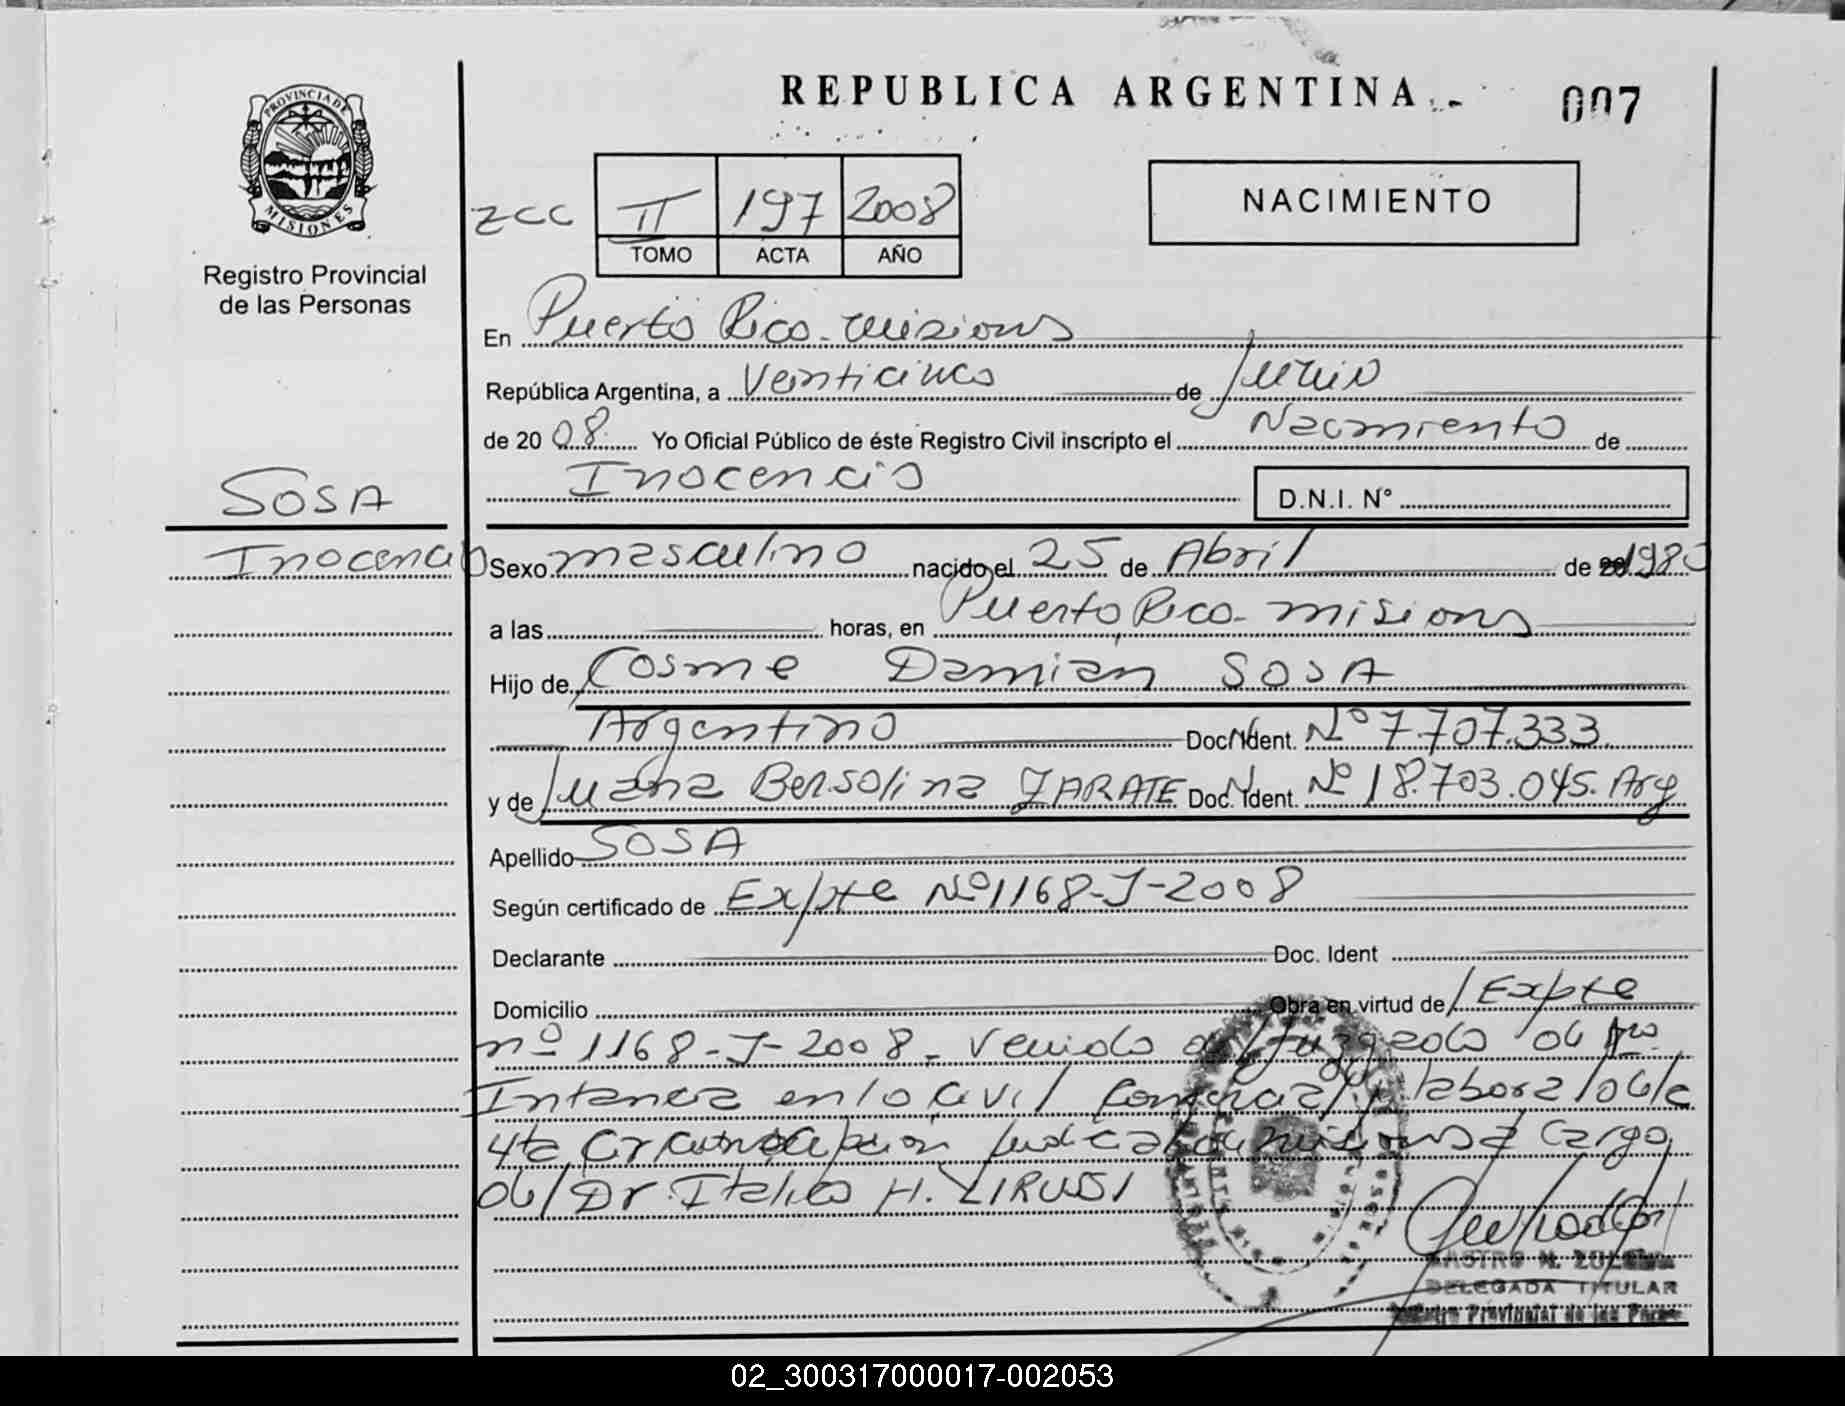 REPUBLICA ARGENTINA
007
PROVINCIA DE
MISIONES
Registro Provincial
de las Personas
zcc
II 197 2008
TOMO ACTA AÑO
NACIMIENTO
En Puerto Rico - misiones
República Argentina, a Veinticinco de Junio
de 20 08 Yo Oficial Público de éste Registro Civil inscripto el Nacimiento de
Inocencio
D.N.I. N°
SOSA
Inocencio
Sexo masculino nacido el 25 de Abril de 20 1980
a las horas, en Puerto Rico - misiones
Hijo de Cosme Damian SOSA
Argentino Doc. Ident. N° 7.707.333
y de Juana Bersolina ZARATE Doc. Ident. N° 18.703.045. Arg
Apellido SOSA
Según certificado de Expte Nº 1168-J-2008
Declarante Doc. Ident
Domicilio Obra en virtud de Expte
nº 1168-J-2008 - Venido del Juzgado de 1ra
Intancia en lo Civil Comercial y laboral de la
4ta Circunscripcion Judicial de misiones a Cargo
del Dr. Italico H.
CASTRO N. ZULEMA
DELEGADA TITULAR
Registro Provincial de las Pers
02_300317000017-002053